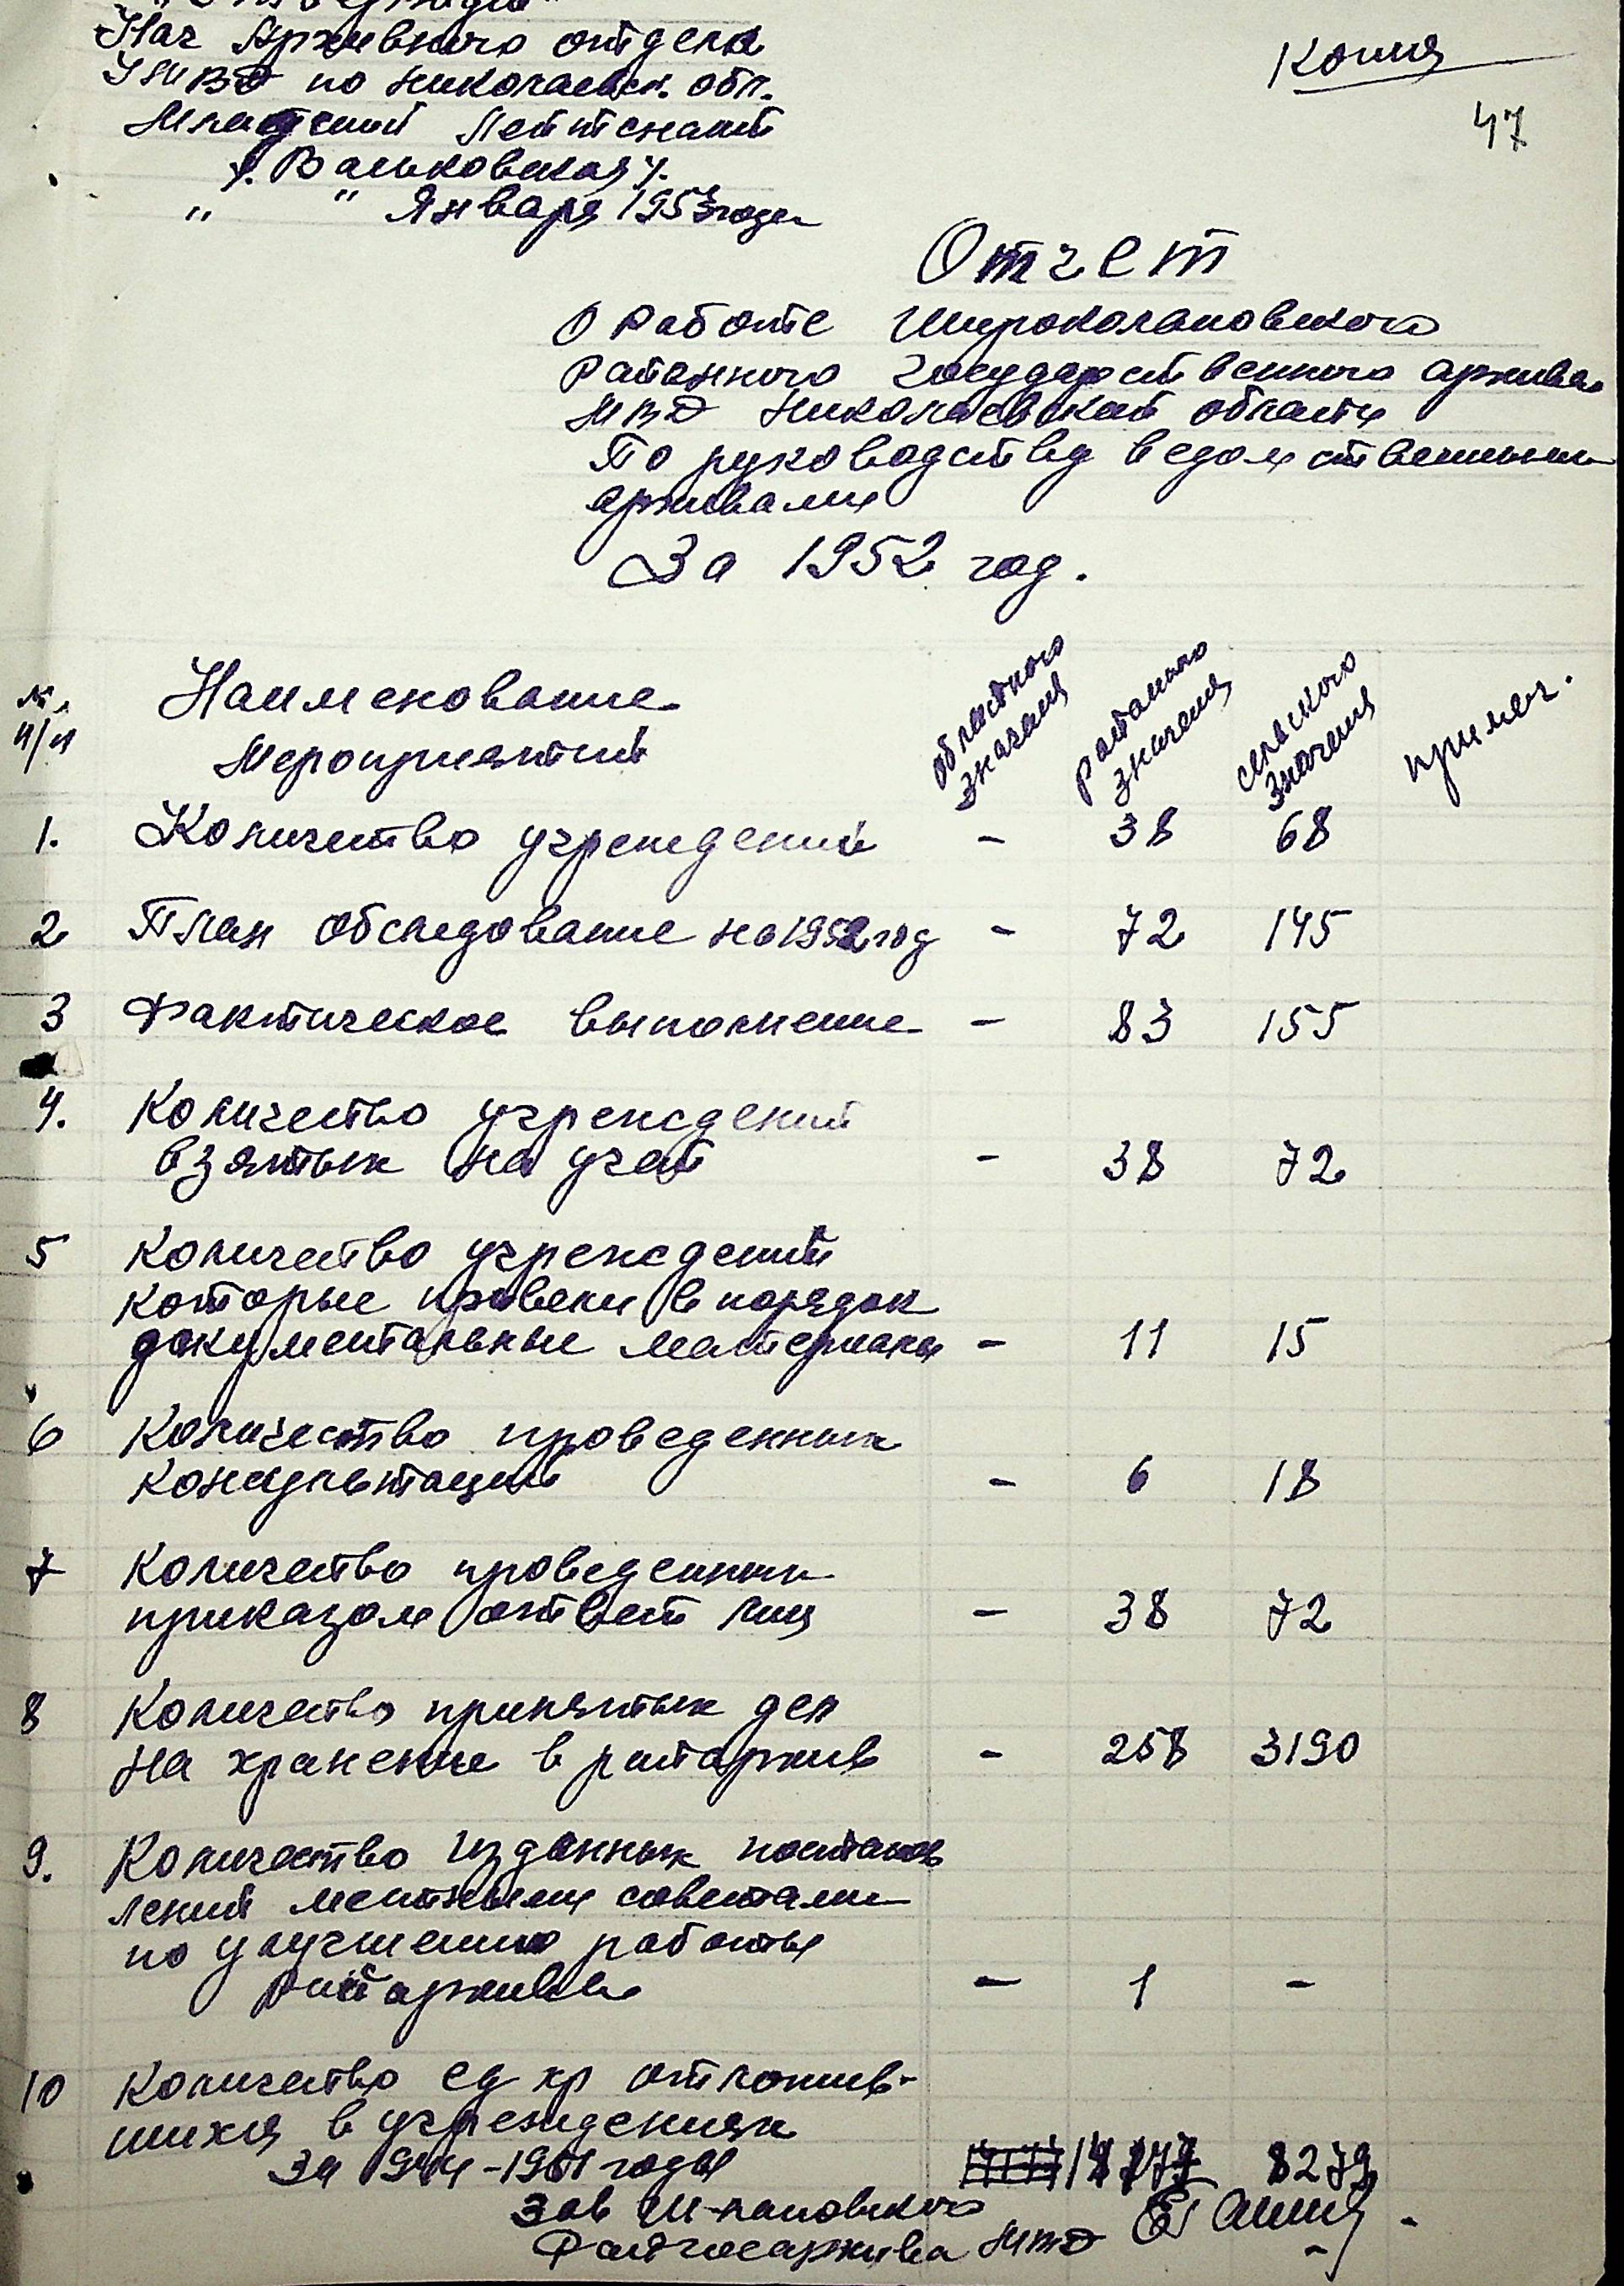 "Утверждаю"
Нач Архивного отдела
УМВД по Николаевск. обл.
Младший Лейтенант
Вальковская
" " Января 1953 года
Копия
47
Отчет
О работе Широколановского
районного государственного архива
МВД Николаевской области
По руководству ведомственными
архивами
За 1952 год.
№ п/п
Наименование
Мероприятий
областного значения
районного значения
сельского значения
примеч.
1. Количество учреждений - 38 68
2 План обследование на 1952 год - 72 145
3 Фактическое выполнение - 83 155
4. Количество учреждений
взятых на учет - 38 72
5 Количество учреждений
которые привели в порядок
документальные материалы - 11 15
6 Количество проведенных
консультаций - 6 18
7 Количество проведенных
приказом ответ лиц - 38 72
8 Количество принятых дел
на хранение в райархив - 258 3190
9. Количество изданных постанов
лений местными советами
по улучшению работы
райархива - 1 -
10 Количество ед хр отложив-
шихся в учреждениях
за 1944-1951 годы 8279
Зав Ш-лановского
Райгосархива МВД